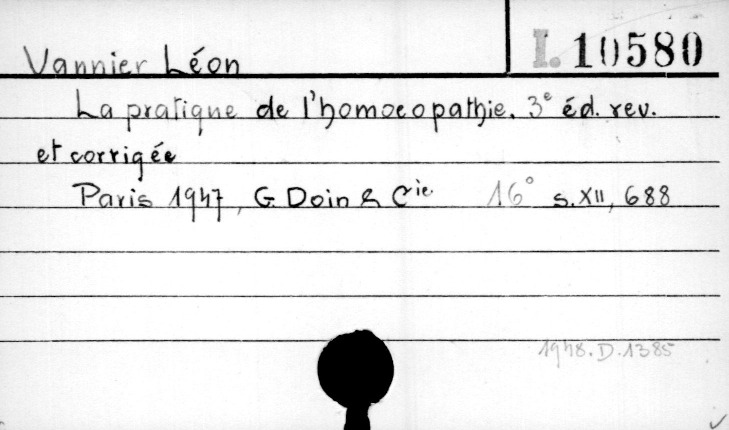 Vannier Léon
I. 10580
La pratique de l'homoeopathie. 3e éd. rev.
et corrigée
Paris 1947, G. Doin & Cie 16° s. XII, 688
1948.D.1385